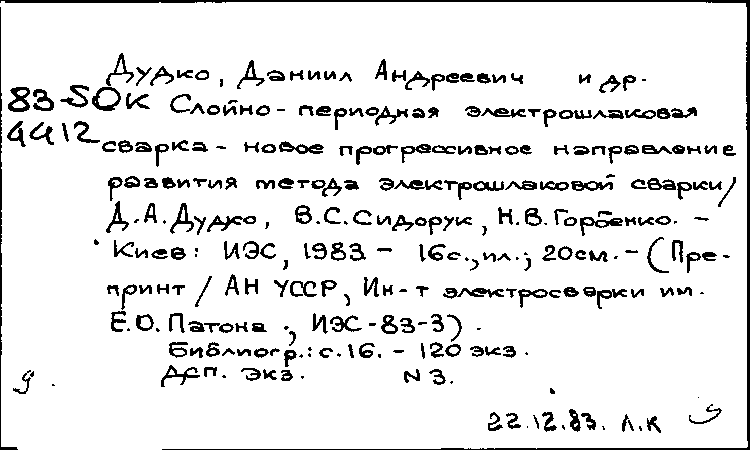 Дудко, Даниил Андреевич и др.
83-5ОК Слойно-периодная электрошлаковая
4412 сварка - новое прогрессивное направление
развития метода электрошлаковой сварки/
Д.А.Дудко, В.С.Сидорук, Н.В.Горбенко. -
Киев: ИЭС, 1983 - 16с., ил.; 20см. - (Пре-
принт / АН УССР, Ин-т электросварки им.
Е.О.Патона ; ИЭС-83-3).
Библиогр.: с.16. - 120 экз.
Деп. экз. N 3.
g.
22.12.83. Л.К